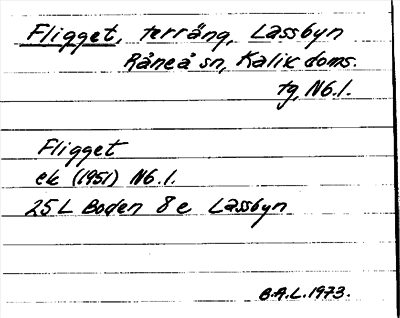 Fligget, terräng, Lassbyn
Råneå sn, Kalix doms.
tg, Nb.l.
Fligget
ek (1951) Nb.l.
25L Boden 8e Lassbyn
B.A.L. 1973.